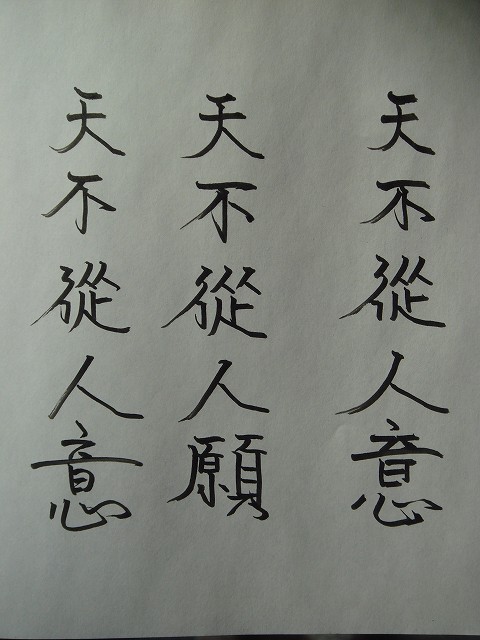 天不從人意
天不從人願
天不從人意